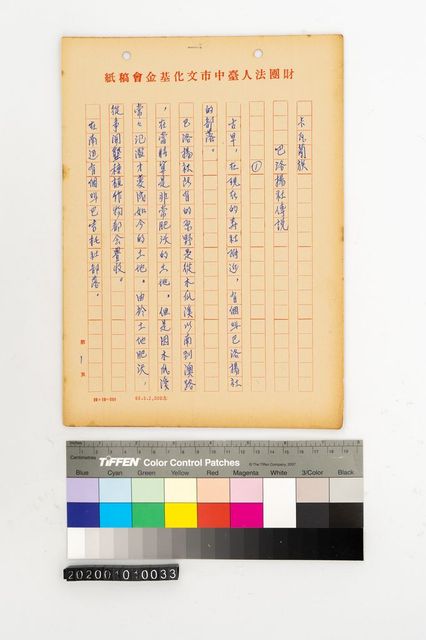 財團法人臺中市文化基金會稿紙
卡瓦蘭族
巴洛揚社傳說
①
古早，在現在的壽社附近，有個叫巴洛揚社
的部落。
巴洛揚社所有的原野是從木瓜溪以南到
，在當時算是非常肥沃的土地。但是因木瓜溪
常々氾濫才變成如今的土地。由於土地肥沃，
從事開墾種植作物都会豐收。
在南边有個叫巴吉托社部落。
第 1 頁
Inches
Centimetres
TIFFEN Color Control Patches
© The Tiffen Company, 2007
Blue Cyan Green Yellow Red Magenta White 3/Color Black
202001010033